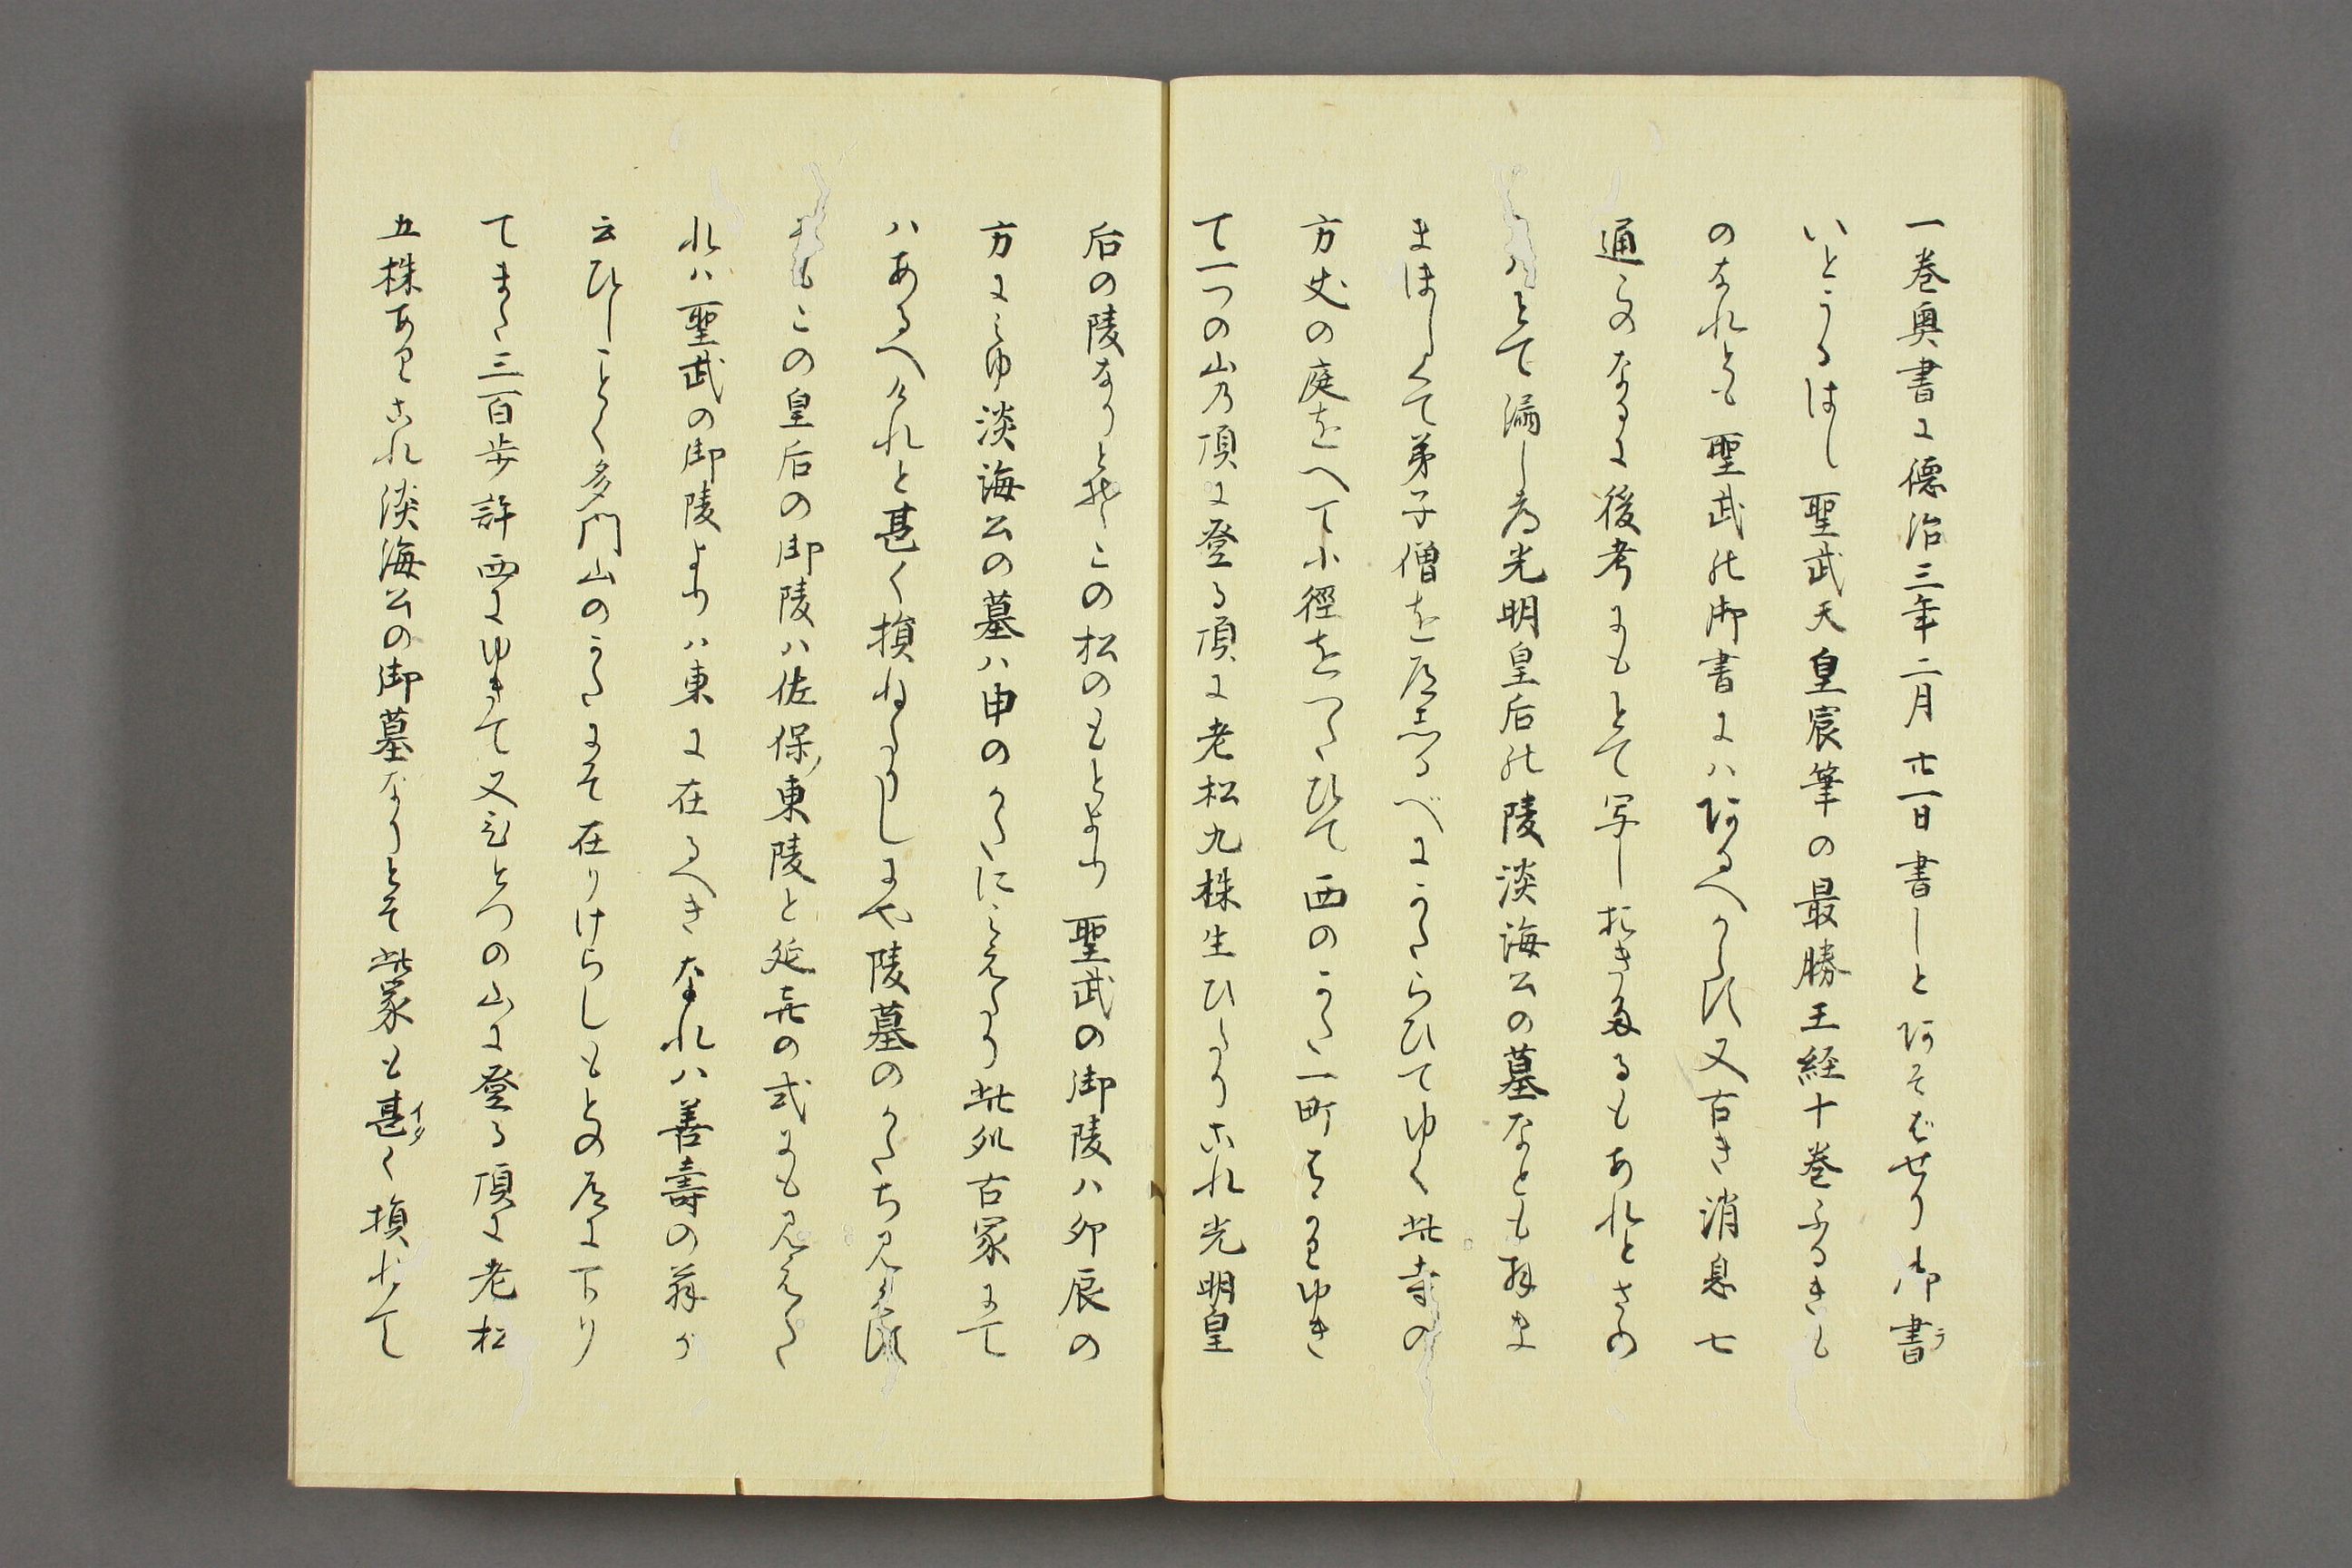 一巻奥書に徳治三年二月廿一日書しとあそばせり御書
いとうるはし聖武天皇宸筆の最勝王経十巻ふるきも
のなれとも聖武の御書にハあるへからす又古き消息七
通そのなるに後考にもとて写しおきたるもあれとさの
ハとて漏しつ光明皇后の陵淡海公の墓なとも拝ま
まほしくて弟子僧を道志るべにかたらひてゆく此寺の
方丈の庭をへて小徑をつたひて西のかた一町はかりゆき
て一つの山乃頂に登る頂に老松九株生ひたりこれ光明皇
后の陵なりとそこの松のもとより聖武の御陵ハ卯辰の
方にミゆ淡海公の墓ハ申のかたにミえたり此処古冢にて
ハあるへけれと甚く損ねたりしにや陵墓のかたち見えす
もこの皇后の御陵ハ佐保ノ東陵と延喜の式にも見えた
れハ聖武の御陵よりハ東に在るへきなれハ善壽の翁か
云ひしことく多門山のかたにそ在りけらしもとの道に下り
てまた三百歩許西にゆきて又ひとつの山に登る頂に老松
五株ありこれ淡海公の御墓なりとそ此冢も甚く損れて